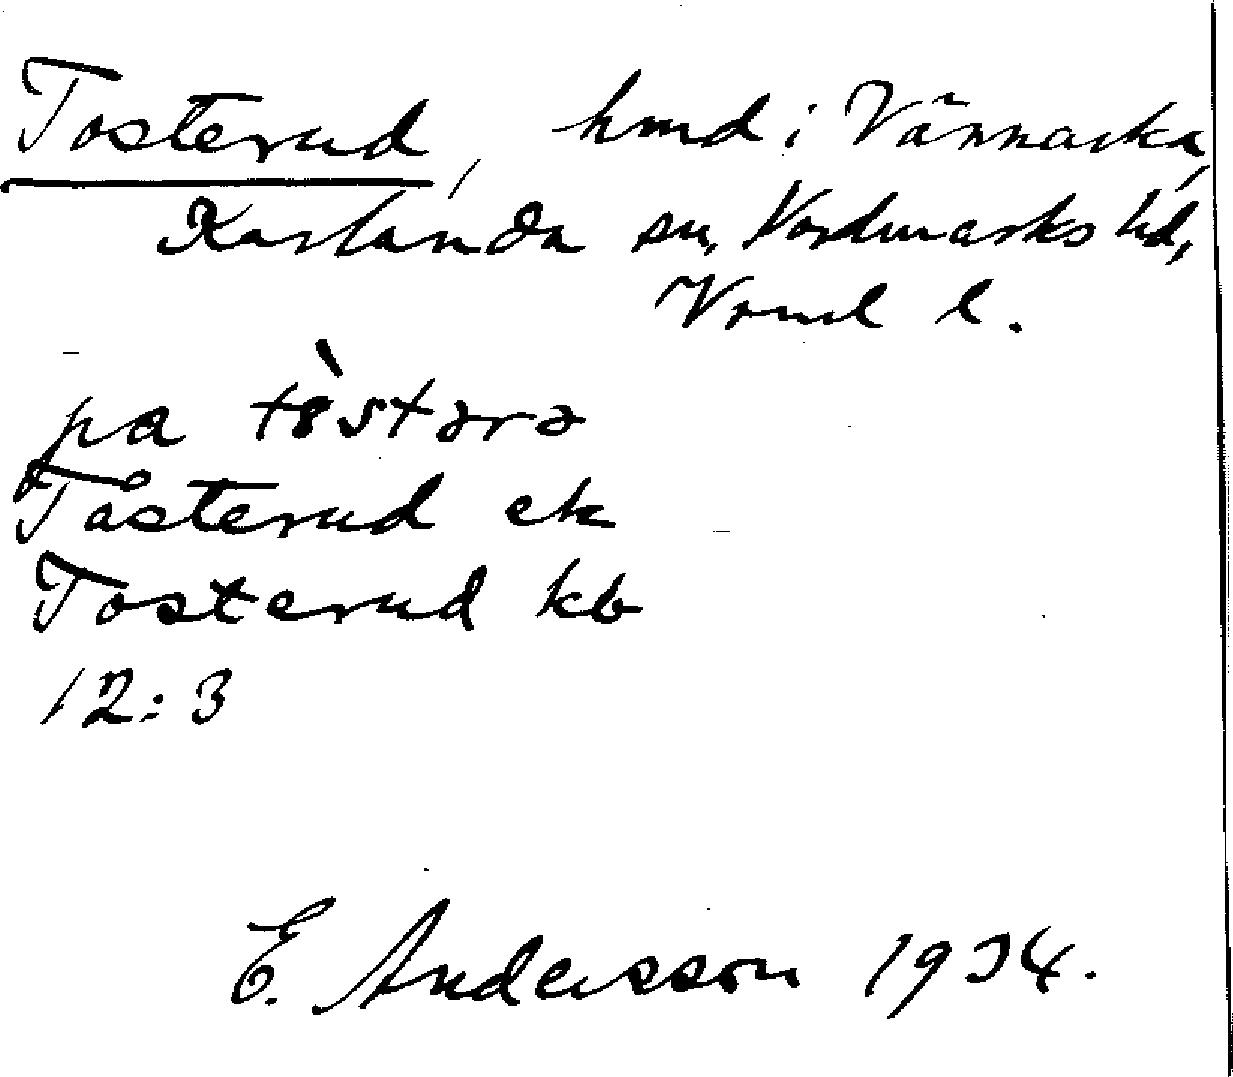 Tosterud, hmd i Vännacka,
Karlanda sn, Nordmarks hd,
Vrml l.
på tòstərə
Tåsterud ek
Tosterud kb
12:3
E. Andersson 1934.